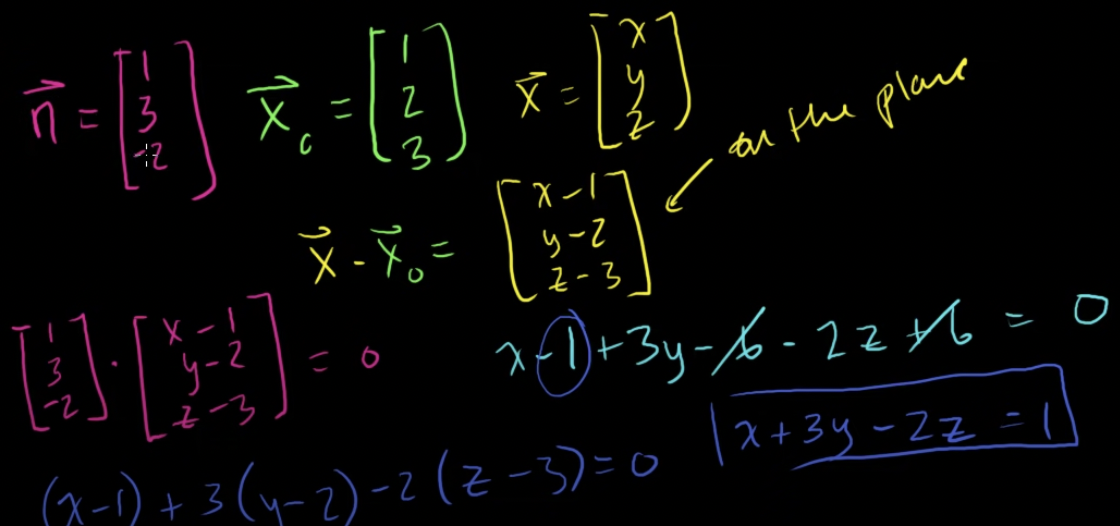 n⃗ = [1 3 -2] x⃗₀ = [1 2 3] x⃗ = [x y z]
on the plane
x⃗ - x⃗₀ = [x-1 y-2 z-3]
[1 3 -2] · [x-1 y-2 z-3] = 0
x-1+3y-6-2z+6 = 0
x+3y-2z=1
(x-1)+3(y-2)-2(z-3)=0